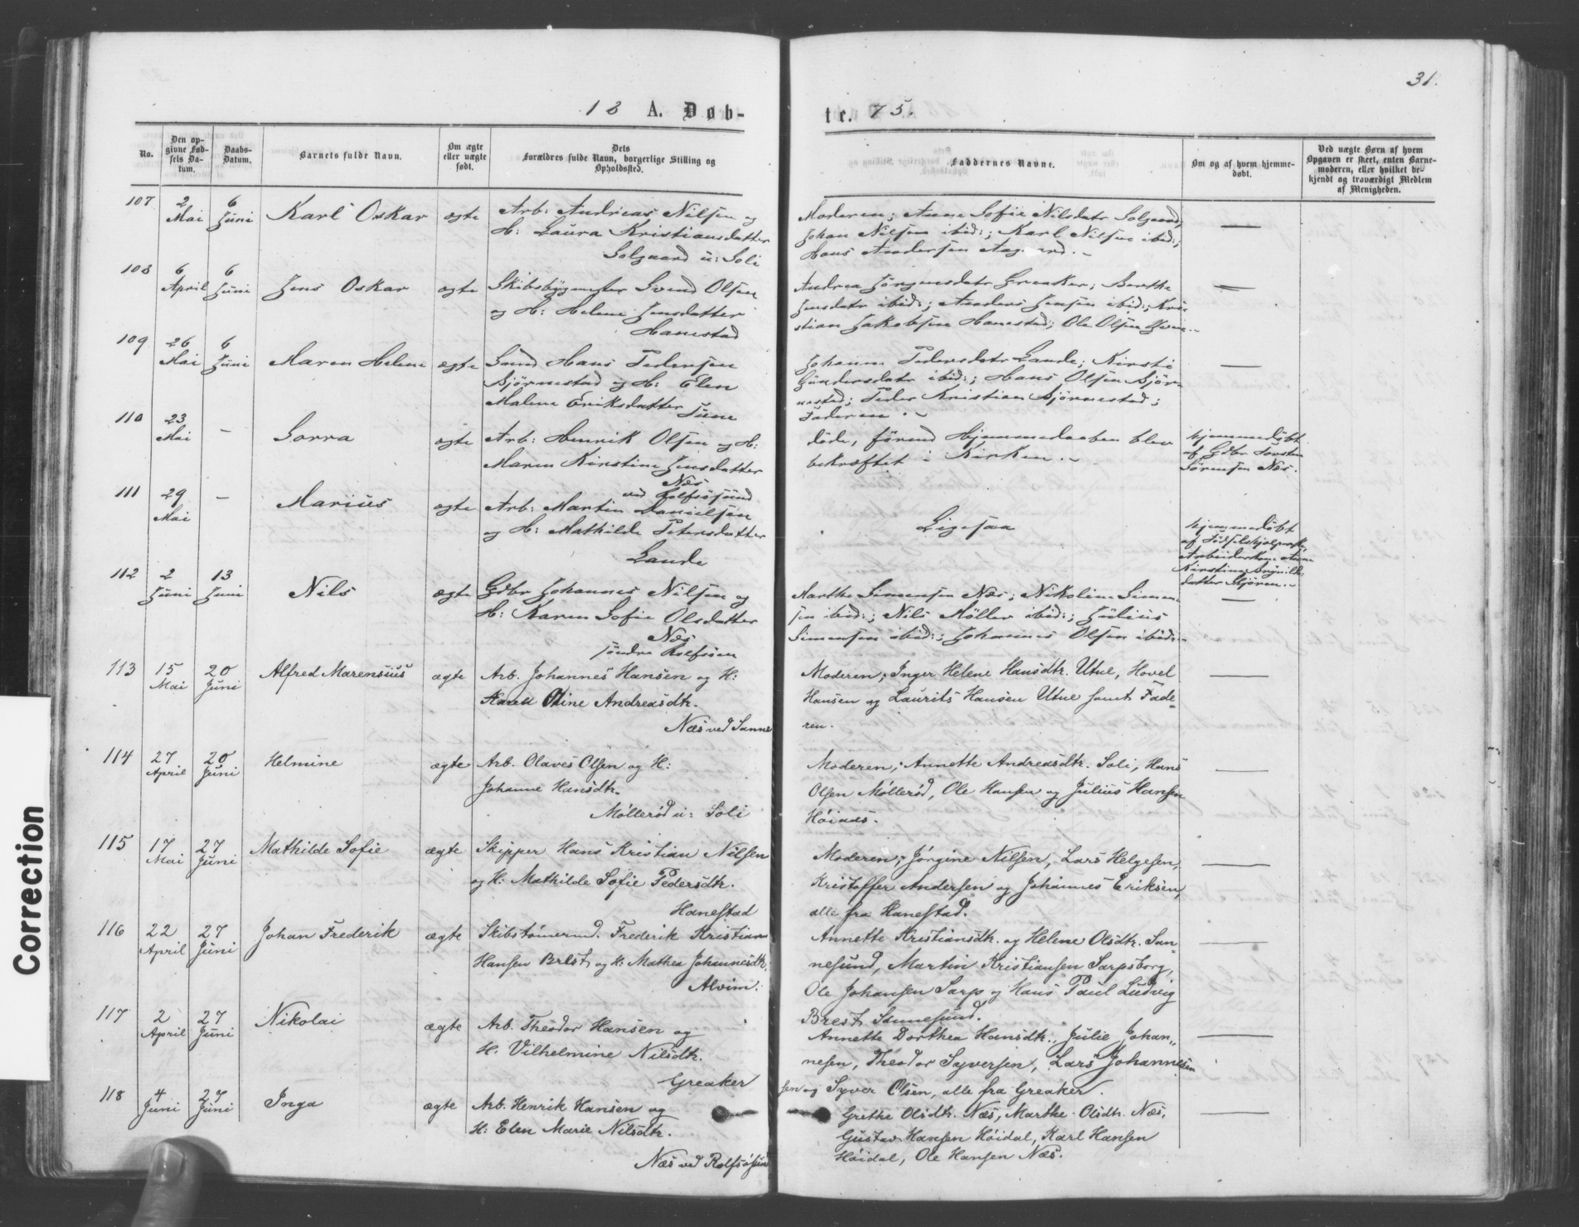 31.
18 A. Døb-
te. 75.
No.
Den op-
givne Fød-
sels Da-
tum.
Daabs-
Datum.
Barnets fulde Navn.
Om ægte
eller uægte
født.
Dets
Forældres fulde Navn, borgerlige Stilling og
Opholdssted.
Faddernes Navne.
Om og af hvem hjemme-
døbt.
Ved uægte Børn af hvem
Opgaven er skeet, enten Barne-
moderen, eller hvilket be-
kjendt og troværdigt Medlem
af Menigheden.
107
2 Mai
6 Juni
Karl Oskar
ægte
Arb: Andreas Nilsen og
H: Laura Kristiansdatter
Solgaard u: Soli
Moderen; Anne Sofie Nilsdatr Solgaard,
Johan Nilsen ibid:; Karl Nilsen ibid:;
Hans Andersen
108
6 April
6 Juni
Jens Oskar
ægte
Skibsbygmester Svend Olsen
og H: Helene Jensdatter
Hanestad
Andrea Jörgensdatr Greaker; Berthe
Jensdatr ibid:; Anders Jensen ibid:; Kri-
stian Jakobsen Hanestad; Ole Olsen
109
26 Mai
6 Juni
Maren Helene
ægte
Hans Pedersen
Bjørnestad og H: Elen
Malene Eriksdatter Tune
Johanne Pedersdatr Lande; Kirsti
Gundersdatr ibid:; Hans Olsen Bjør-
nestad; Peder Kristian Bjørnestad;
Faderen.
110
23 Mai
–
Lovva
ægte
Arb: Henrik Olsen og H:
Maren Kirstine Jensdatter
Næs
ved Rolfsösund
döde, förend Hjemmedaaben blev
bekræftet i Kirken.
hjemmedöbt
af Gdbr Torsten
Sörensen Næs.
111
29 Mai
–
Marius
ægte
Arb: Martin Danielsen
og H: Mathilde Petersdatter
Lande
Ligesaa
hjemmedöbt
af Födselshjælpersk
Arbeiderkone Anne
Kirstine
datter
112
2 Juni
13 Juni
Nils
ægte
Gdbr Johannes Nilsen og
H: Karen Sofie Olsdatter
Næs
søndre Rolfsøen
Marthe Simensen Næs; Nikoline Simen-
sen ibid:; Nils Möller ibid:; Julius
Simensen ibid:; Johannes Olsen ibid:
113
15 Mai
20 Juni
Alfred Marensius
ægte
Arb. Johannes Hansen og H:
Karen Oline Andreasdtr.
Næs ved Sanne
Moderen; Inger Helene Hansdtr. Utne, Hovel
Hansen og Laurits Hansen Utne samt Fade-
ren.
114
27 April
20 Juni
Helmine
ægte
Arb. Olaves Olsen og H:
Johanne Hansdtr.
Møllerød u: Soli
Moderen; Annette Andreasdtr. Soli, Hans
Olsen Møllerød, Ole Hansen og Julius Hansen
115
17 Mai
27 Juni
Mathilde Sofie
ægte
Skipper Hans Kristian Nilsen
og H: Mathilde Sofie Pedersdtr.
Hanestad
Moderen; Jørgine Nilsen, Lars Helgesen,
Kristoffer Andersen og Johannes Eriksen,
alle fra Hanestad.
116
22 April
27 Juni
Johan Frederik
ægte
Skibstømermd. Frederik Kristian
Hansen Brest og H: Mathea Johannesdtr.
Alvim.
Annette Kristiansdtr. og Helene Olsdtr. San-
nesund, Martin Kristiansen Sarpsborg,
Ole Johansen Sarp og Hans Paul Ludvig
Brest Sannesund.
117
2 April
27 Juni
Nikolai
ægte
Arb. Theodor Hansen og
H. Vilhelmine Nilsdtr.
Greaker
Annette Dorthea Hansdtr., Julie Johan-
nesen, Theodor Syversen, Lars Johannes
sen og Syver Olsen, alle fra Greaker.
118
4 Juni
27 Juni
Inga
ægte
Arb. Henrik Hansen og
H: Elen Marie Nilsdtr.
Næs ved Rolfsøsund
Grethe Olsdtr. Næs, Marthe Olsdtr. Næs,
Gustav Hansen Høidal, Karl Hansen
Høidal, Ole Hansen Næs.
Correction